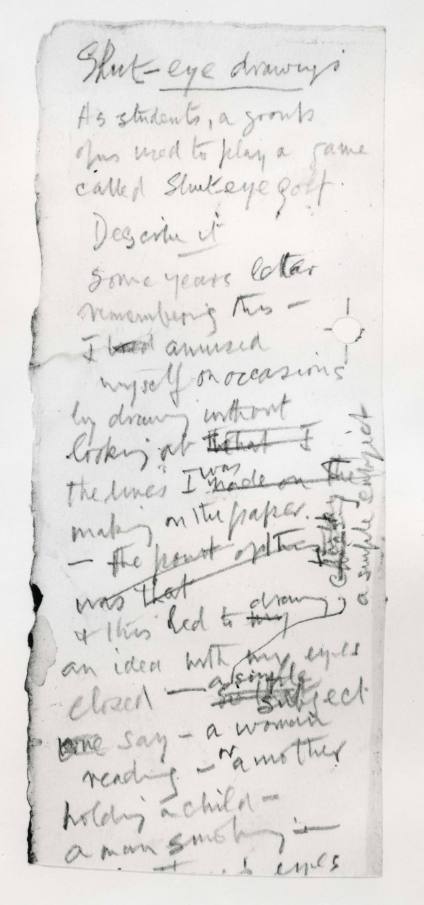 Shut-eye drawings
As students, a group
of us used to play a game
called Shut eye golf.
Describe it
some years later
remembering this —
I had amused
myself on occasions
by drawing without
looking at that I
the lines I was made on the
making on the paper.
— the point of this
was that
& this led to drawing my
an idea with my eyes
closed — a simple
subject
say — a woman
reading — or a mother
holding a child —
a man smoking —
eyes
a simple subject